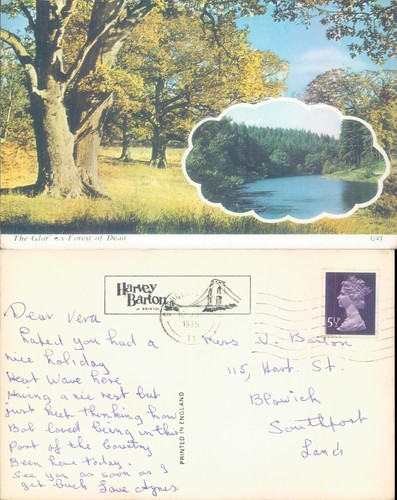 The Glorious Forest of Dean
Q4T
Harvey
Barton
OF BRISTOL
1975
5½P
PRINTED IN ENGLAND
Dear Vera
you had a
nice holiday
Heat Wave here
Having a nice rest but
just keep thinking how
Bob loved being in this
Part of the Country
Been here today.
See you as soon as I
get back Love Agnes
Mrs V. Barton
115, Hart. St.
Blowick
Southport
Lancs